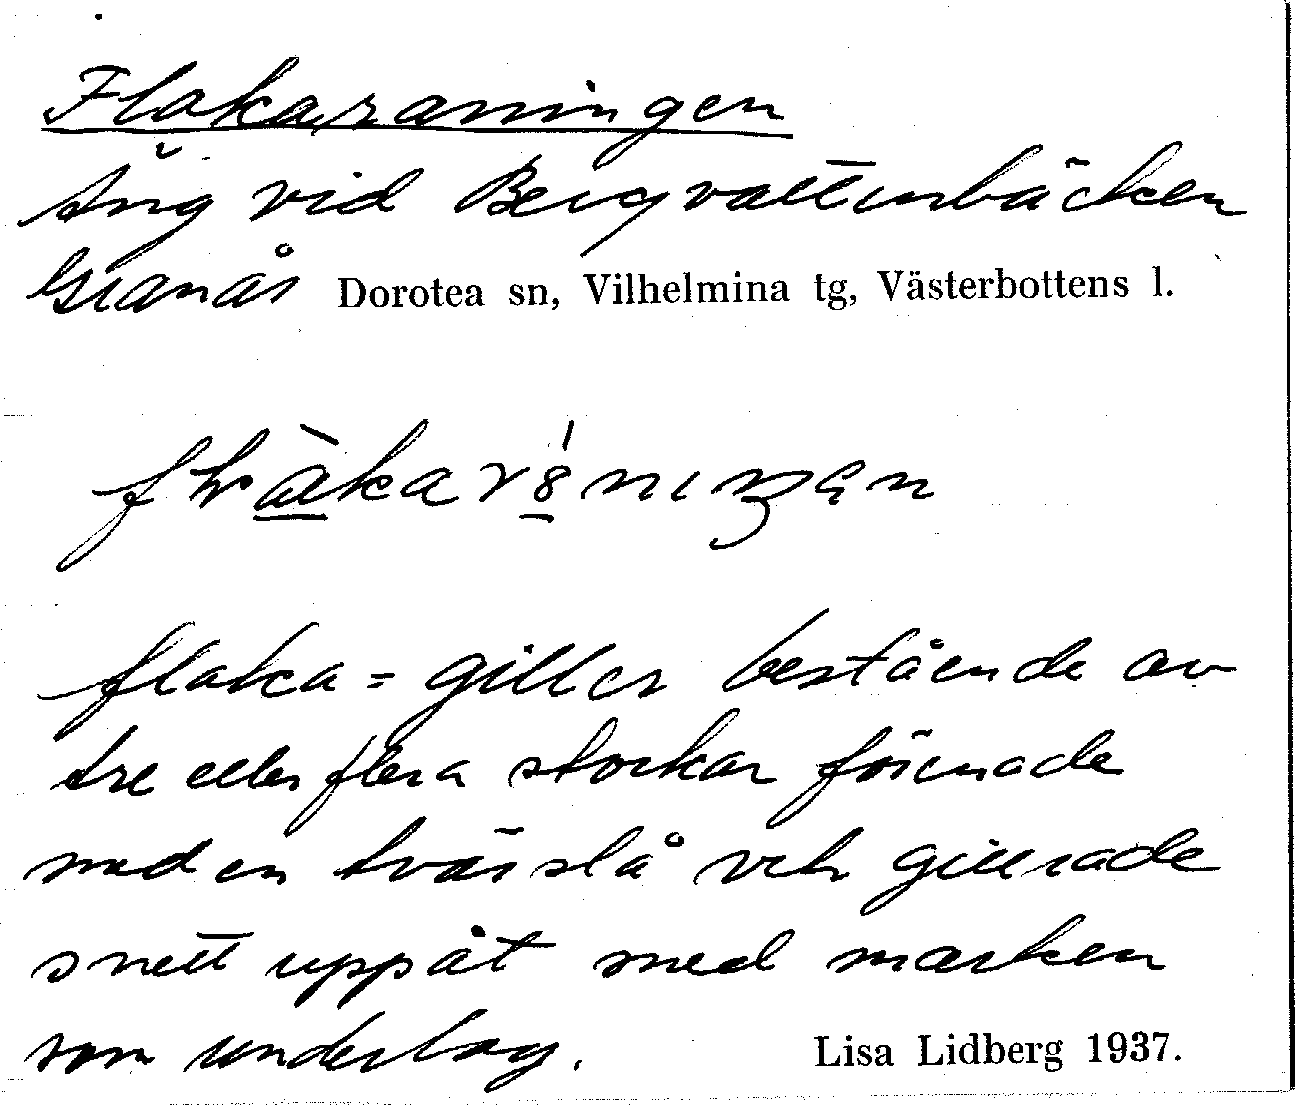 Flakaraningen
Äng vid Bergvattenbäcken
Granås Dorotea sn, Vilhelmina tg, Västerbottens l.
flaka = giller bestående av
tre eller flera stockar förenade
med en tvärslå och gillrade
snett uppåt med marken
som underlag. Lisa Lidberg 1937.